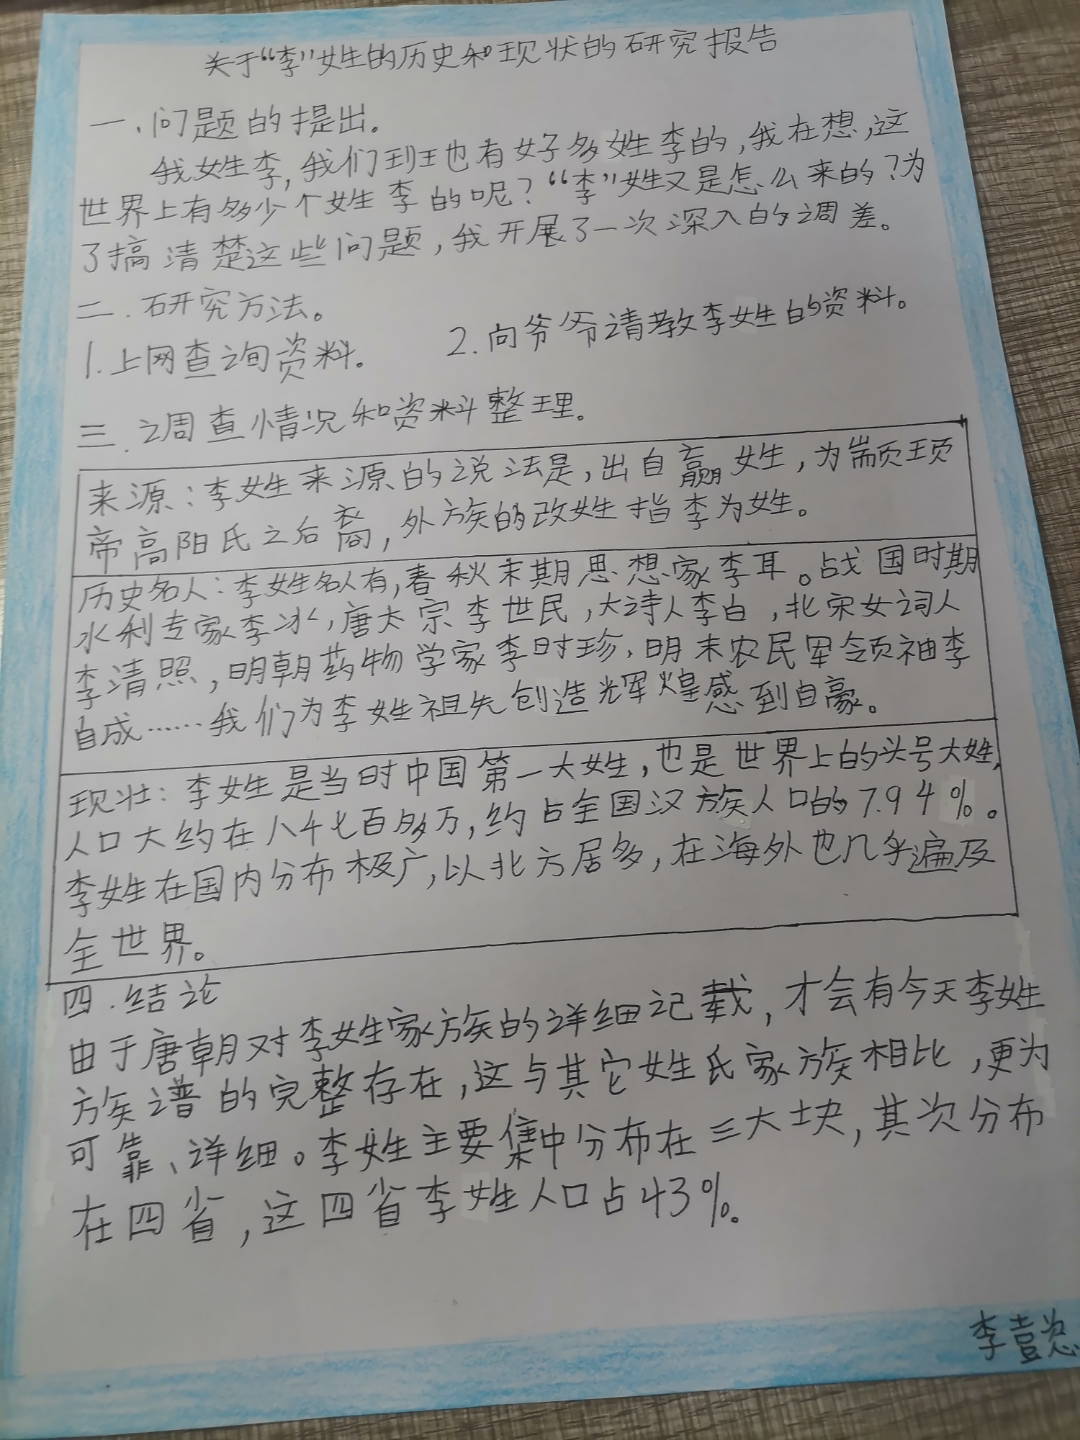 关于“李”姓的历史和现状的研究报告
一、问题的提出。
我姓李,我们班也有好多姓李的,我在想,这
世界上有多少个姓李的呢?“李”姓又是怎么来的?为
了搞清楚这些问题,我开展了一次深入的调差。
二.研究方法。
1.上网查询资料。 2.向爷爷请教李姓的资料。
三.调查情况和资料整理。
来源:李姓来源的说法是,出自嬴姓,为颛顼
帝高阳氏之后裔,外族的改姓指李为姓。
历史名人:李姓名人有,春秋末期思想家李耳。战国时期
水利专家李冰,唐太宗李世民,大诗人李白,北宋女词人
李清照,明朝药物学家李时珍,明末农民军领袖李
自成……我们为李姓祖先创造辉煌感到自豪。
现壮:李姓是当时中国第一大姓,也是世界上的头号大姓,
人口大约在八千七百多万,约占全国汉族人口的7.94%。
李姓在国内分布极广,以北方居多,在海外也几乎遍及
全世界。
四.结论
由于唐朝对李姓家族的详细记载,才会有今天李姓
族谱的完整存在,这与其它姓氏家族相比,更为
可靠、详细。李姓主要集中分布在三大块,其次分布
在四省,这四省李姓人口占43%。
李壹